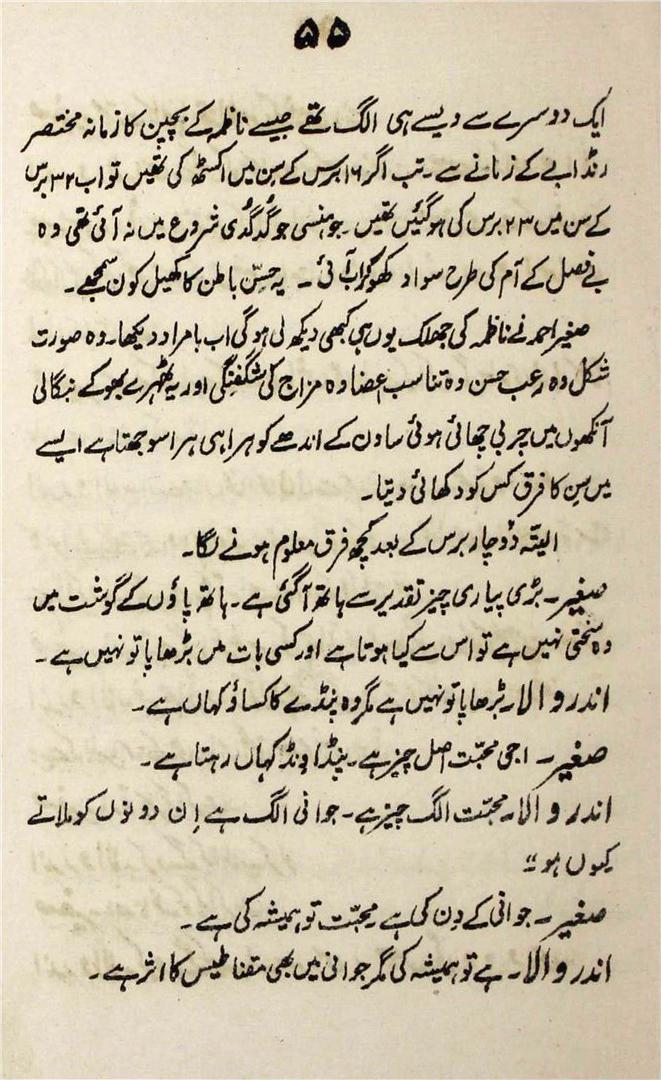 ۵۵
ایک دوسرے سے ویسے ہی الگ تھے جیسے ناظمہ کے بچپن کا زمانہ مختصر
رنڈاپے کے زمانے سے ۔ تب اگر ۱۶ برس کے سِن میں اکسٹھ کی تھیں تو اب ۳۲ برس
کے سن میں ۲۳ برس کی ہو گئیں تھیں ۔ جو ہنسی جو گُدگُدی شروع میں نہ آئی تھی وہ
بے فصل کے آم کی طرح سواد کھو کر اب آئی ۔ یہ حسِّ باطن کا کھیل کون سمجھے ۔
صغیر احمد نے ناظمہ کی جھلک یوں ہی کبھی دیکھ لی ہو گی اب بامراد دیکھا ۔ وہ صورت
شکل وہ رعب حسن وہ تناسب اعضا وہ مزاج کی شگفتگی اور یہ ٹھہرے بھوکے بنگالی
آنکھوں میں چربی چھائی ہوئی ساون کے اندھے کو ہرا ہی ہرا سوجھتا ہے ایسے
میں سِن کا فرق کس کو دکھائی دیتا ۔
البتہ دُو چار برس کے بعد کچھ فرق معلوم ہونے لگا ۔
صغیر ۔ بڑی پیاری چیز تقدیر سے ہاتھ آ گئی ہے ۔ ہاتھ پاؤں کے گوشت میں
وہ سختی نہیں ہے تو اس سے کیا ہوتا ہے اور کسی بات میں بڑھاپا تو نہیں ہے ۔
اندر والا ۔ بڑھاپا تو نہیں ہے مگر وہ پنڈے کا کساؤ کہاں ہے ۔
صغیر ۔ اجی محبّت اصل چیز ہے ۔ پنڈا ونڈ کہاں رہتا ہے ۔
اندر والا ۔ محبّت الگ چیز ہے ۔ جوانی الگ ہے اِن دونوں کو ملاتے
کیوں ہو ؛؛
صغیر ۔ جوانی کے دِن کی ہے محبّت تو ہمیشہ کی ہے ۔
اندر والا ۔ ہے تو ہمیشہ کی مگر جوانی میں بھی مقناطیس کا اثر ہے ۔